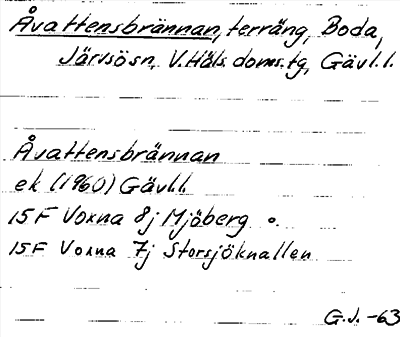 Åvattensbrännan, terräng, Boda,
Järvsösn, V. Häls. doms.tg, Gävl.l.
Åvattensbrännan
ek (1960) Gävl.l.
15 F Voxna 8j Mjöberg o.
15 F Voxna 7j Storsjöknallen
G.J. -63